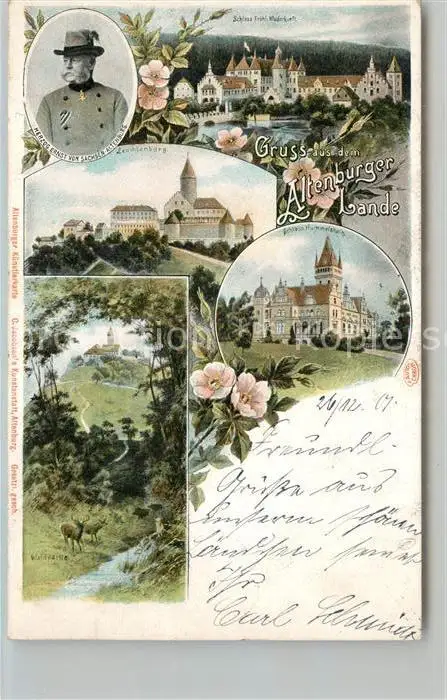 Schloss Fröhl. Wiederkunft.
HERZOG ERNST VON SACHSEN-ALTENBURG
Leuchtenburg.
Gruss aus dem
Altenburger
Lande
Schloss Hummelshain.
Altenburger Künstlerkarte
Kunstanstalt, Altenburg.
Gesetzl. gesch.
26/12. 01.
Freundl.
Grüße aus
unserm schönen
Ländchen sendet
Ihr
Carl Schmidt